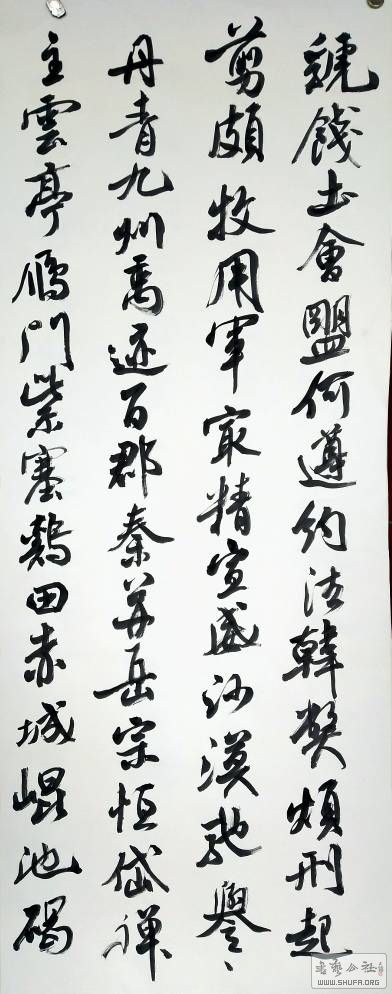 虢餞土會盟何遵約法韓弊煩刑起
剪頗牧用軍冣精宣威沙漠馳譽、
丹青九州禹迹百郡秦并岳宗恒岱禪
主雲亭鴈門紫塞鷄田赤城崐池碣
书艺公社
WWW.SHUFA.ORG